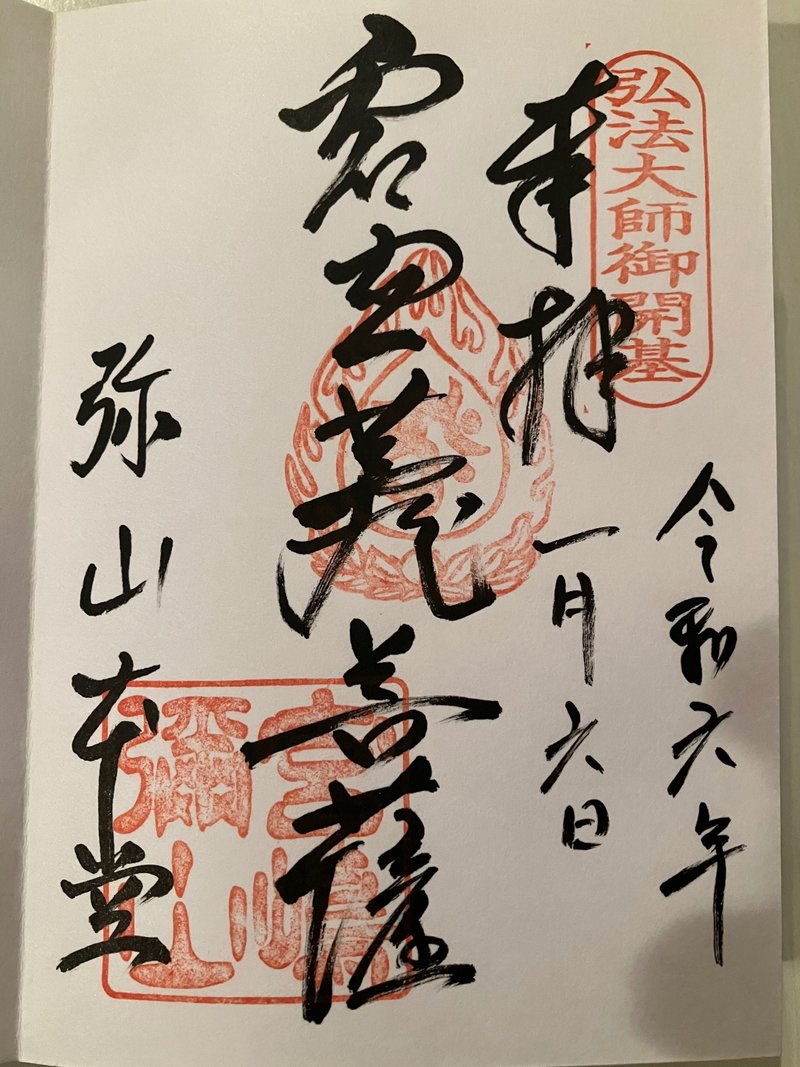 弘法大師御開基
令和六年
奉拝
一月六日
虚空蔵菩薩
宮嶋
彌山
弥山本堂